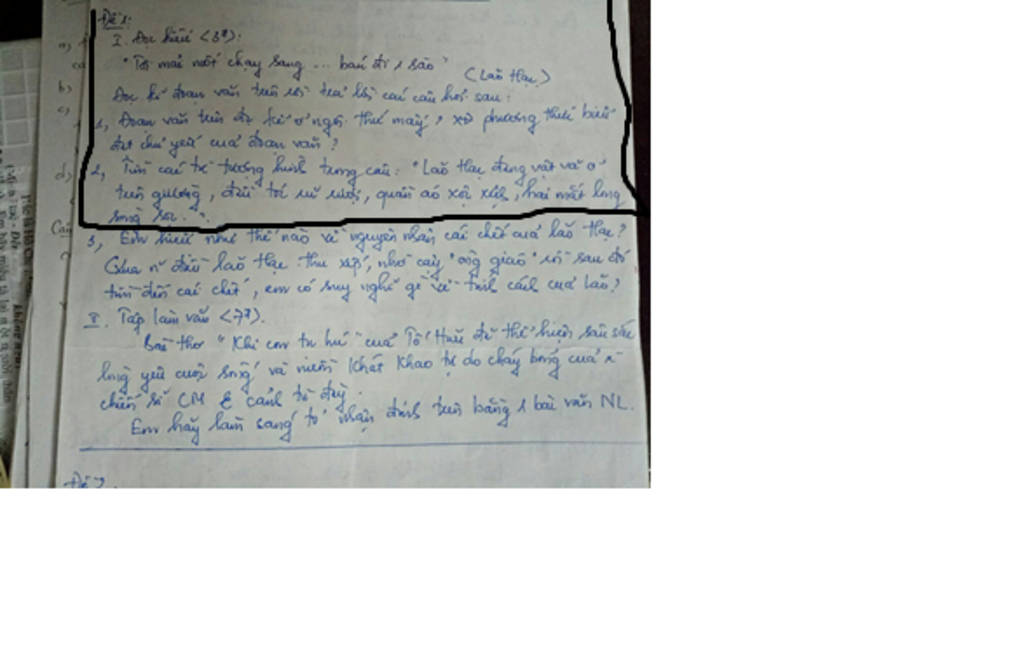 Đề 1:
I. Đọc hiểu <3đ>:
"Tôi mải mốt chạy sang ... bán đi 1 sào"
(Lão Hạc)
Đọc kĩ đoạn văn trên rồi trả lời các câu hỏi sau:
1, Đoạn văn trên đc kể ở ngôi thứ mấy, xđ phương thức biểu
đạt chủ yếu của đoạn văn?
2, Tìm các từ tượng hình trong câu: "Lão Hạc đang vật vã ở
trên giường, đầu tóc rũ rượi, quần áo xộc xệch, hai mắt long
sòng sọc."
3, Em hiểu như thế nào về nguyên nhân cái chết của lão Hạc?
Qua n~ điều lão Hạc thu xếp, nhờ cậy "ông giáo" rồi sau đó
tìm đến cái chết, em có suy nghĩ gì về tính cách của lão?
II. Tập làm văn <7đ>.
Bài thơ "Khi con tu hú" của Tố Hữu đã thể hiện sâu sắc
lòng yêu cuộc sống và niềm khát khao tự do cháy bỏng của n~
chiến sĩ CM & cảnh tù đày.
Em hãy làm sáng tỏ nhận định trên bằng 1 bài văn NL.
a)
b)
c)
d)
Câu
Đề 2.